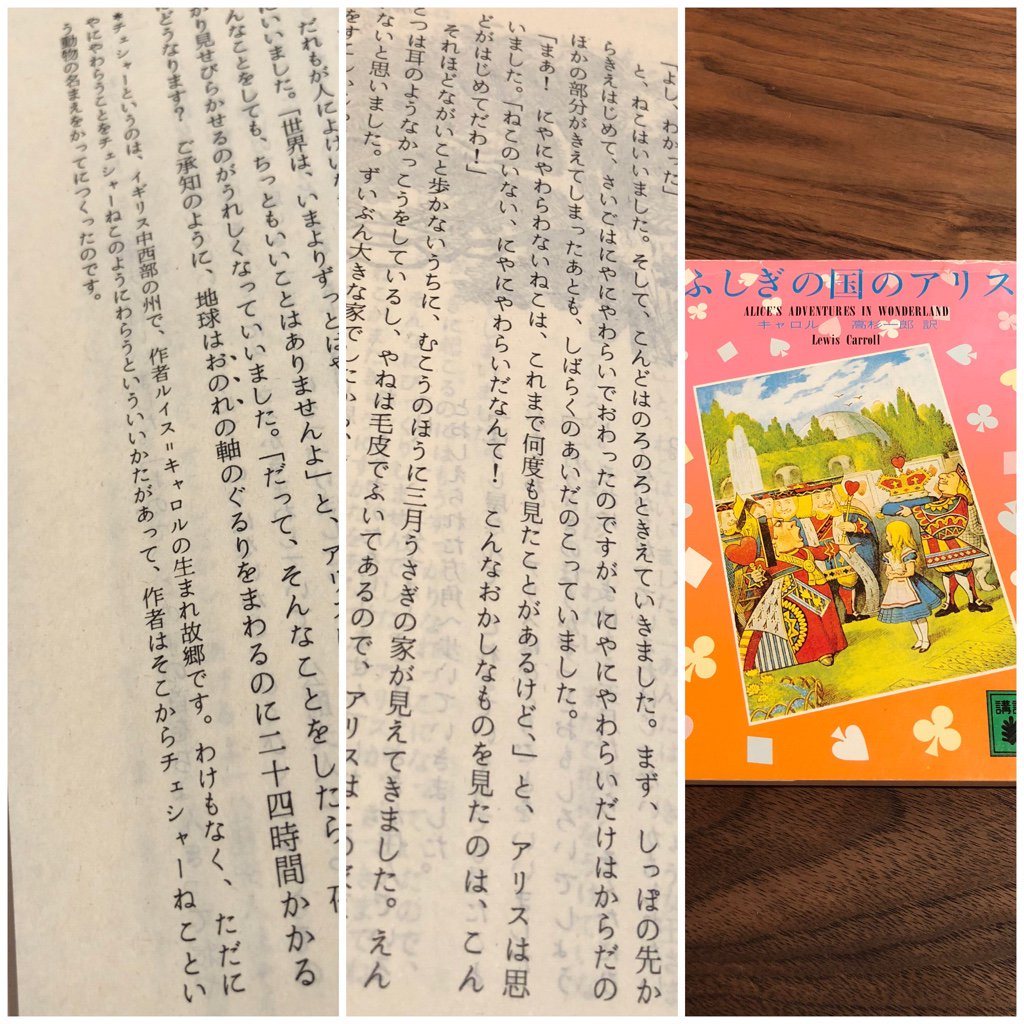 だれもが人によけい
にいいました。「世界は、いまよりずっとはや
んなことをしても、ちっともいいことはありませんよ」と、アリ
かり見せびらかせるのがうれしくなっていいました。「だって、そんなことをしたら
どうなります？　ご承知のように、地球はおのれの軸のぐるりをまわるのに二十四時間かかる
＊チェシャーというのは、イギリス中西部の州で、作者ルイス＝キャロルの生まれ故郷です。わけもなく、ただに
やにやわらうことをチェシャーねこのようにわらうといういいかたがあって、作者はそこからチェシャーねことい
う動物の名まえをかってにつくったのです。
「よし、わかった」
と、ねこはいいました。そして、こんどはのろのろときえていきました。まず、しっぽの先か
らきえはじめて、さいごはにやにやわらいでおわったのですが、にやにやわらいだけはからだの
ほかの部分がきえてしまったあとも、しばらくのあいだのこっていました。
「まあ！　にやにやわらわないねこは、これまで何度も見たことがあるけど、」と、アリスは思
いました。「ねこのいない、にやにやわらいだなんて！　こんなおかしなものを見たのは、こん
どがはじめてだわ！」
それほどながいこと歩かないうちに、むこうのほうに三月うさぎの家が見えてきました。えん
とつは耳のようなかっこうをしているし、やねは毛皮でふいてあるので、アリスは
ないと思いました。ずいぶん大きな家でした
ふしぎの国のアリス
ALICE'S ADVENTURES IN WONDERLAND
キャロル　高杉一郎 訳
Lewis Carroll